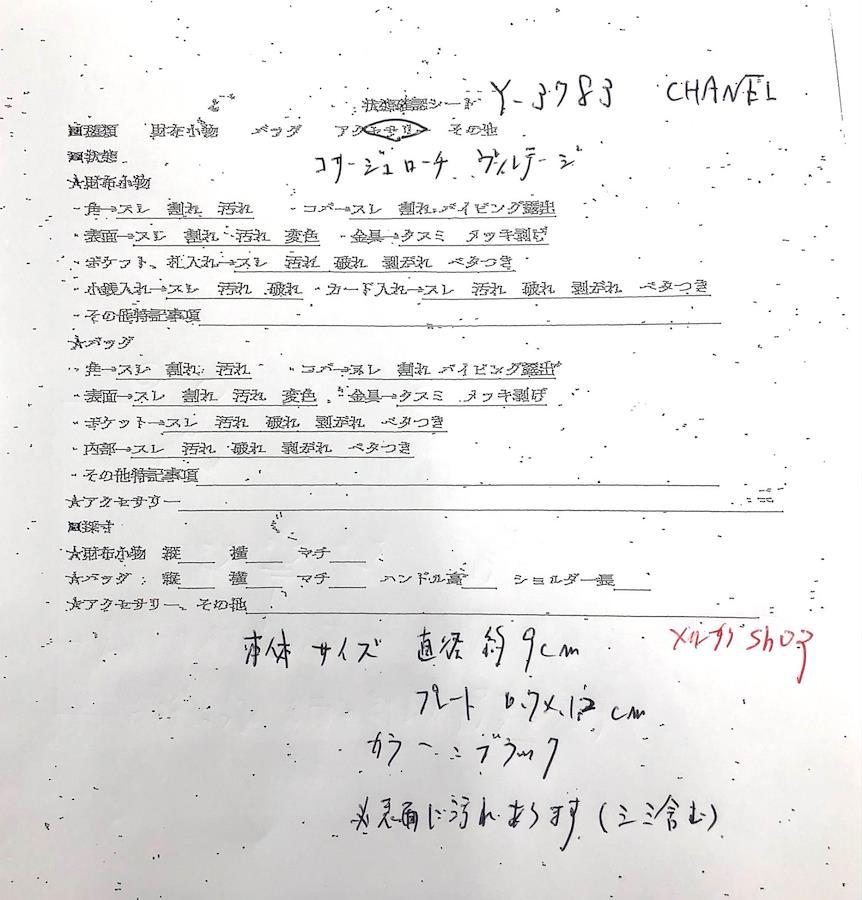 状態確認シート Y-3783 CHANEL
■種類 財布小物 バッグ アクセサリー その他
■状態 コサージュローチ ヴィンテージ
★財布小物
・角→スレ 割れ 汚れ ・コバ→スレ 割れ パイピング露出
・表面→スレ 割れ 汚れ 変色 ・金具→クスミ メッキ剥げ
・ポケット、札入れ→スレ 汚れ 破れ 剥がれ ベタつき
・小銭入れ→スレ 汚れ 破れ ・カード入れ→スレ 汚れ 破れ 剥がれ ベタつき
・その他特記事項
★バッグ
・角→スレ 割れ 汚れ ・コバ→スレ 割れ パイピング露出
・表面→スレ 割れ 汚れ 変色 ・金具→クスミ メッキ剥げ
・ポケット→スレ 汚れ 破れ 剥がれ ベタつき
・内部→スレ 汚れ 破れ 剥がれ ベタつき
・その他特記事項
★アクセサリー
■採寸
★財布小物 縦 横 マチ
★バッグ 縦 横 マチ ハンドル高 ショルダー長
★アクセサリー、その他
本体サイズ 直径約9cm メルカリshop
プレート 0.7×1.2cm
カラー:ブラック
※表面に汚れあります(シミ含む)